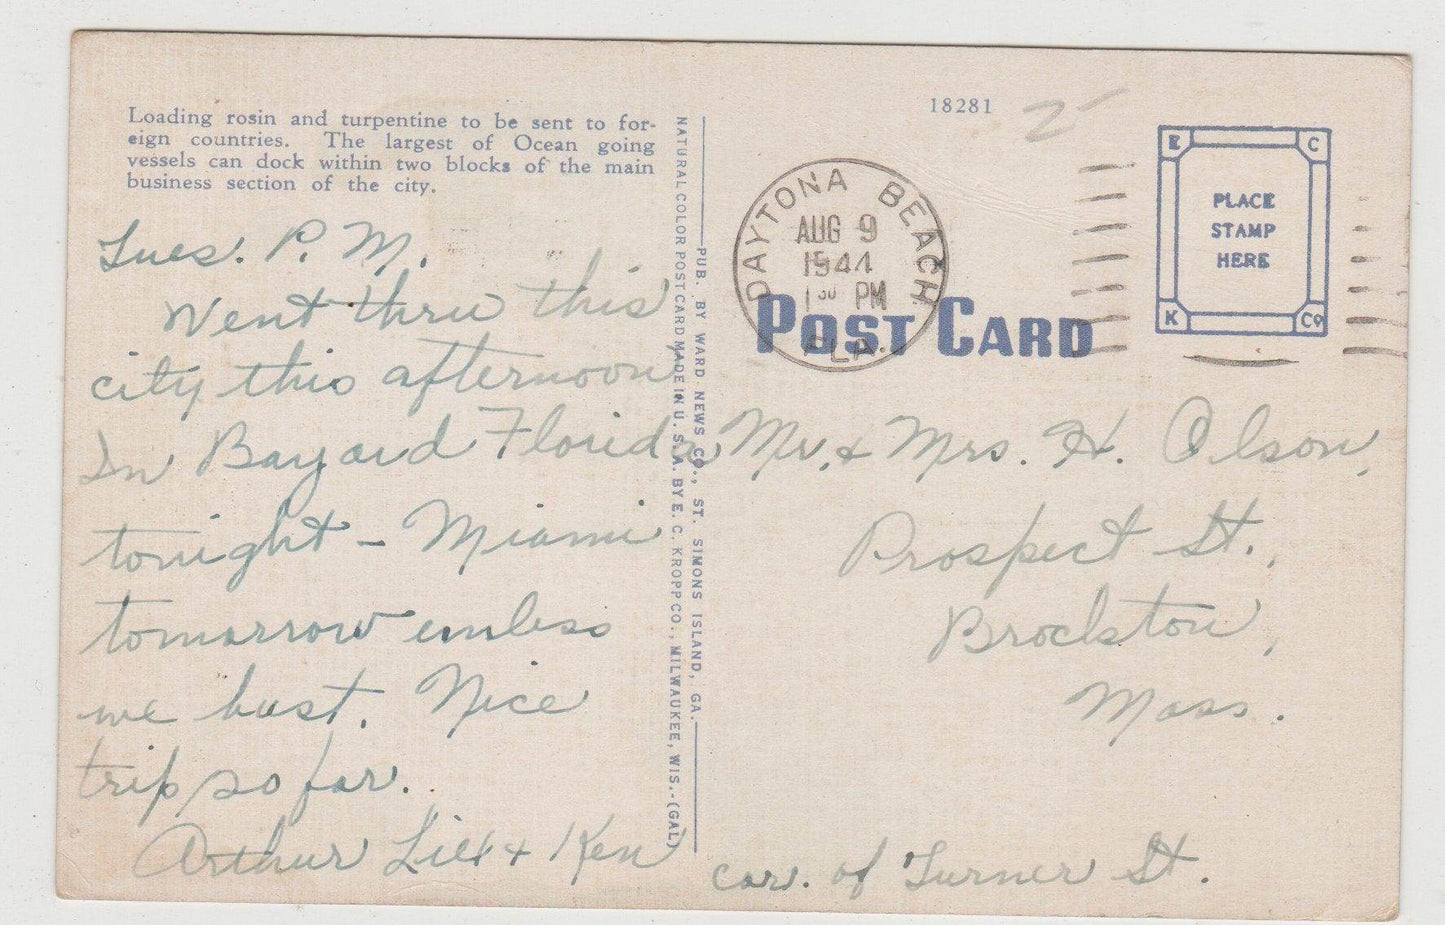 Loading rosin and turpentine to be sent to for-
eign countries. The largest of Ocean going
vessels can dock within two blocks of the main
business section of the city.
Tues. P. M.
Went thru this
city this afternoon
In Bayard Florida
tonight - Miami
tomorrow unless
we bust. Nice
trip so far.
Arthur Lill + Ken
NATURAL COLOR POST CARD MADE IN U. S. A. BY E. C. KROPP CO., MILWAUKEE, WIS.-(GAL)
PUB. BY WARD NEWS CO., ST. SIMONS ISLAND, GA.
18281
DAYTONA BEACH
AUG 9
1944
1 30 PM
FLA.
E C
PLACE
STAMP
HERE
K Co
POST CARD
Mr. & Mrs. H. Olson,
Prospect St.,
Brockton,
Mass.
cor. of Turner St.